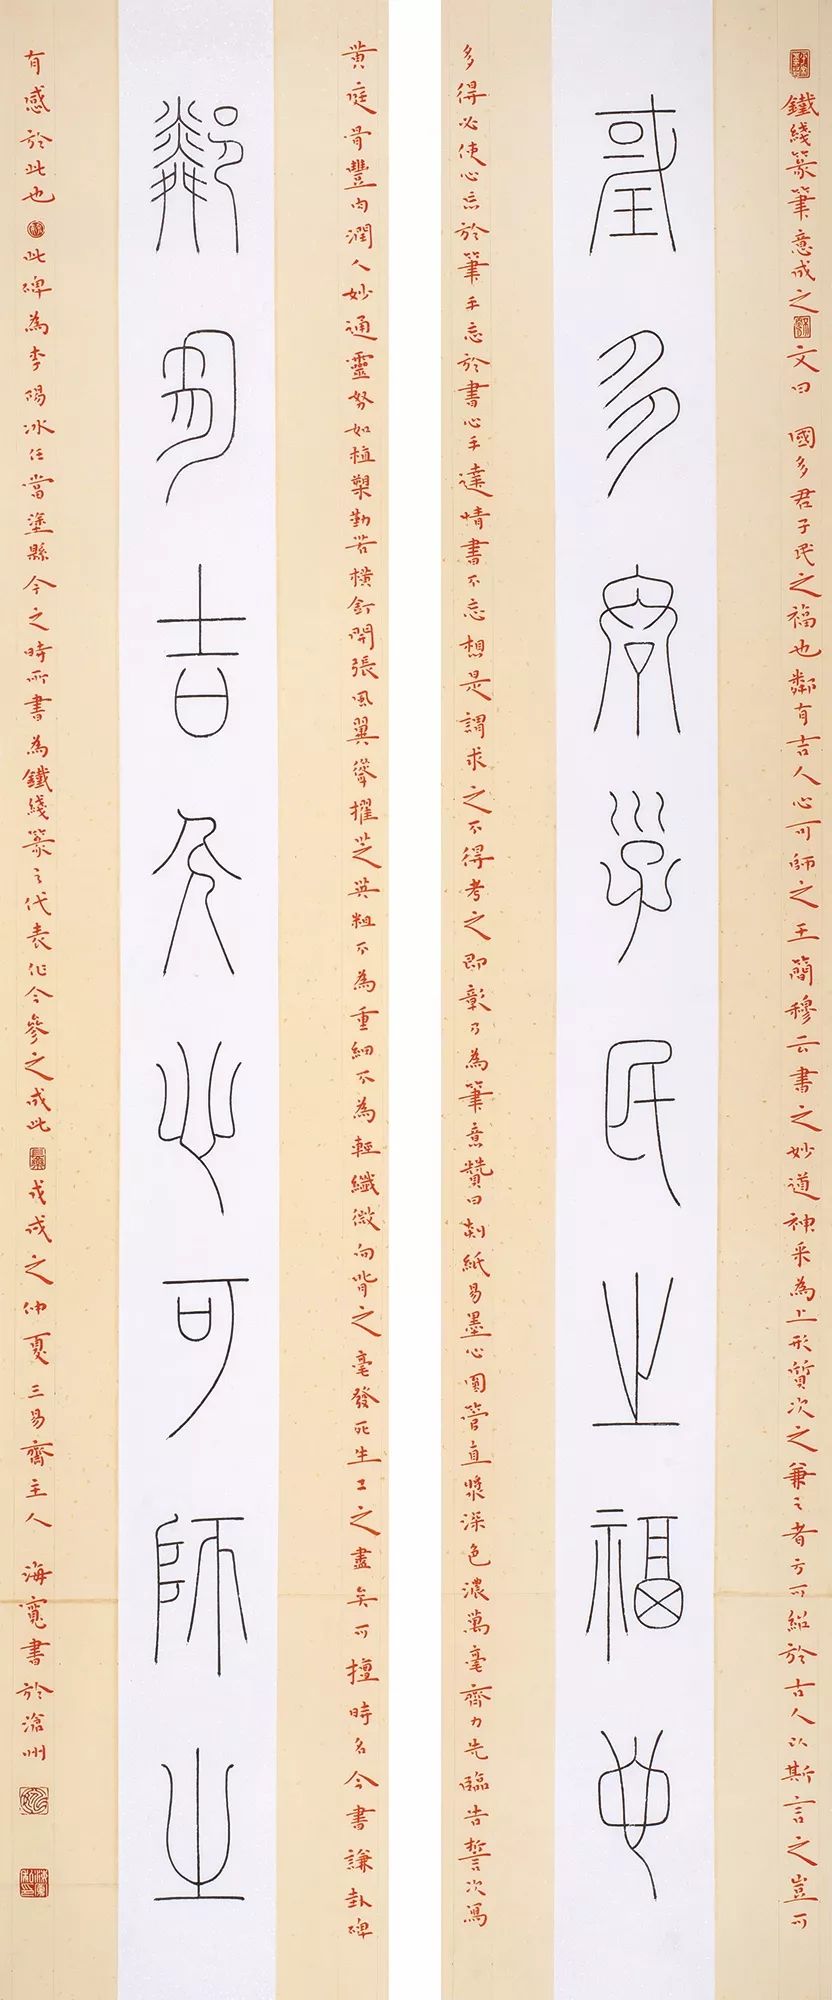 鐵綫篆筆意成之 文曰 國多君子民之福也鄰有吉人心可師之王簡穆云書之妙道神采為上形質次之兼之者方可紹於古人以斯言之豈可
國多君子民之福也
多得必使心忘於筆手忘於書心手達情書不忘想是謂求之不得考之即彰乃為筆意贊曰剡紙易墨心圓管直漿深色濃萬毫齊力先臨告誓次寫
黃庭骨豐肉潤入妙通靈努如植槊勒若橫釘開張風翼聳擢芝英粗不為重細不為輕纖微向背之毫發死生工之盡矣可擅時名今書謙卦碑
鄰有吉人心可師之
有感於此也 此碑為李陽冰任當塗縣令之時所書為鐵綫篆之代表作今參之成此 戊戌之仲夏三易齋主人 海寬書於滄州